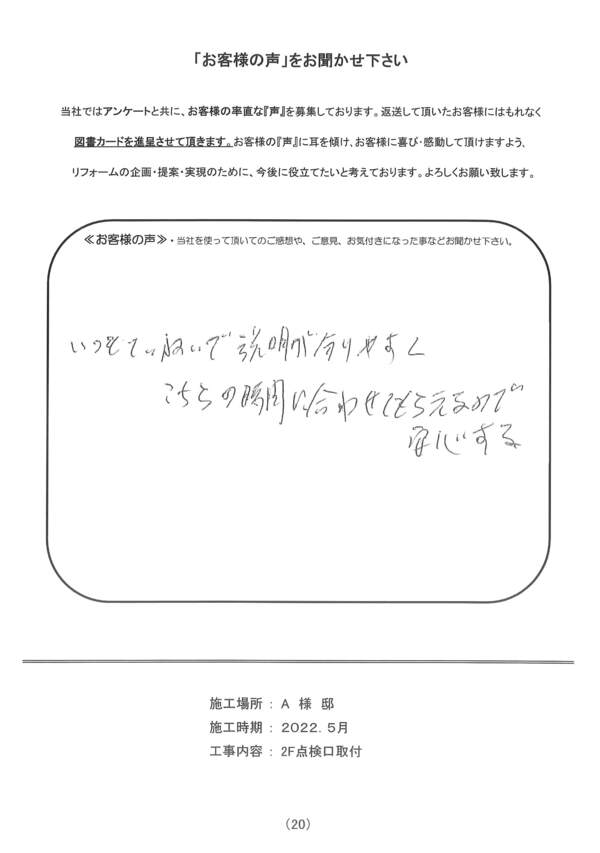 「お客様の声」をお聞かせ下さい
当社ではアンケートと共に、お客様の率直な『声』を募集しております。返送して頂いたお客様にはもれなく
図書カードを進呈させて頂きます。お客様の『声』に耳を傾け、お客様に喜び・感動して頂けますよう、
リフォームの企画・提案・実現のために、今後に役立てたいと考えております。よろしくお願い致します。
≪お客様の声≫・当社を使って頂いてのご感想や、ご意見、お気付きになった事などお聞かせ下さい。
いつもていねいで説明が分りやすく
こちらの時間に合わせてもらえるので
安心する
施工場所 : A 様 邸
施工時期 : 2022.5月
工事内容 : 2F点検口取付
(20)